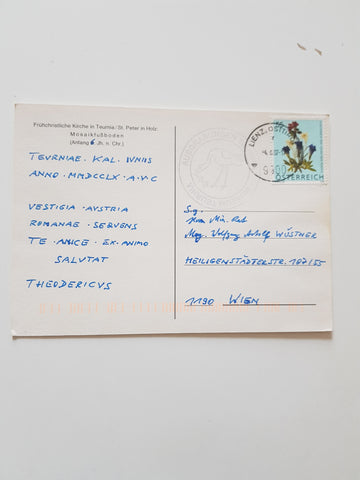 Frühchristliche Kirche in Teurnia/St. Peter in Holz
Mosaikfußboden
(Anfang 6. Jh. n. Chr.)
TEVRNIAE · KAL · IVNIIS
ANNO · MMDCCLX · A·V·C
VESTIGIA · AVSTRIA
ROMANAE · SERVENS
TE · AMICE · EX·ANIMO
SALVTAT
THEODERICVS
LIENZ, OSTTIROL
ÖSTERREICH
Mag. Wolfgang Adolf WÜSTNER
HEILIGENSTÄDTERSTR. 107/55
1190 WIEN